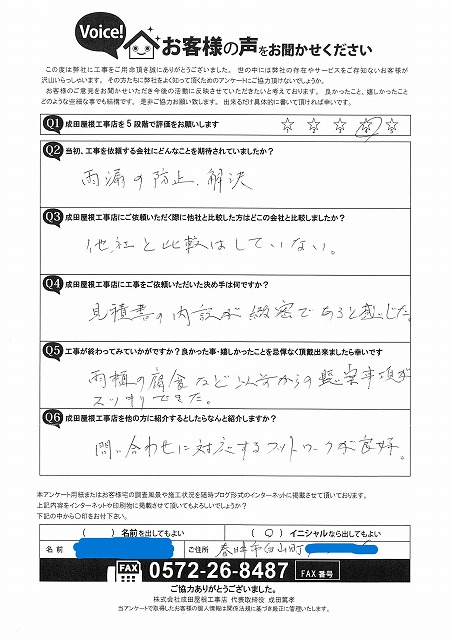 Voice!
お客様の声をお聞かせください
この度は弊社に工事をご用命頂き誠にありがとうございました。世の中には弊社の存在やサービスをご存知ないお客様が
沢山いらっしゃいます。その方たちに弊社をよく知って頂くためのアンケートにご協力頂けないでしょうか。
お客様のご意見をお聞かせいただき今後の活動に反映させていただきたいと考えております。良かったこと、嬉しかったこと
どのような些細な事でも結構です。是非ご協力お願い致します。出来るだけ具体的に書いて頂ければ幸いです。
Q1 成田屋根工事店を5段階で評価をお願いします ☆ ☆ ☆ ☆ ☆
Q2 当初、工事を依頼する会社にどんなことを期待されていましたか?
雨漏の防止、解決
Q3 成田屋根工事店にご依頼いただく際に他社と比較した方はどこの会社と比較しましたか?
他社と比較はしていない。
Q4 成田屋根工事店に工事をご依頼いただいた決め手は何ですか?
見積書の内訳が緻密であると感じた。
Q5 工事が終わってみていかがですか?良かった事・嬉しかったことを忌憚なく頂戴出来ましたら幸いです
雨樋の腐食など以前からの懸案事項が
スッキリできた。
Q6 成田屋根工事店を他の方に紹介するとしたらなんと紹介しますか?
問い合わせに対応するフットワークが良好。
本アンケート用紙またはお客様宅の調査風景や施工状況を随時ブログ形式のインターネットに掲載させて頂いております。
上記内容をインターネットや印刷物に掲載させて頂いてもよろしいでしょうか?
下記の中から〇印をお付下さい。
( ) 名前を出してもよい ( 〇 ) イニシャルなら出してもよい
名 前 ご住所 春日井市白山町
FAX 0572-26-8487 FAX番号
ご協力ありがとうございました。
株式会社成田屋根工事店 代表取締役 成田篤孝
当アンケートで取得したお客様の個人情報は関係法規に基づき厳正に管理いたします。